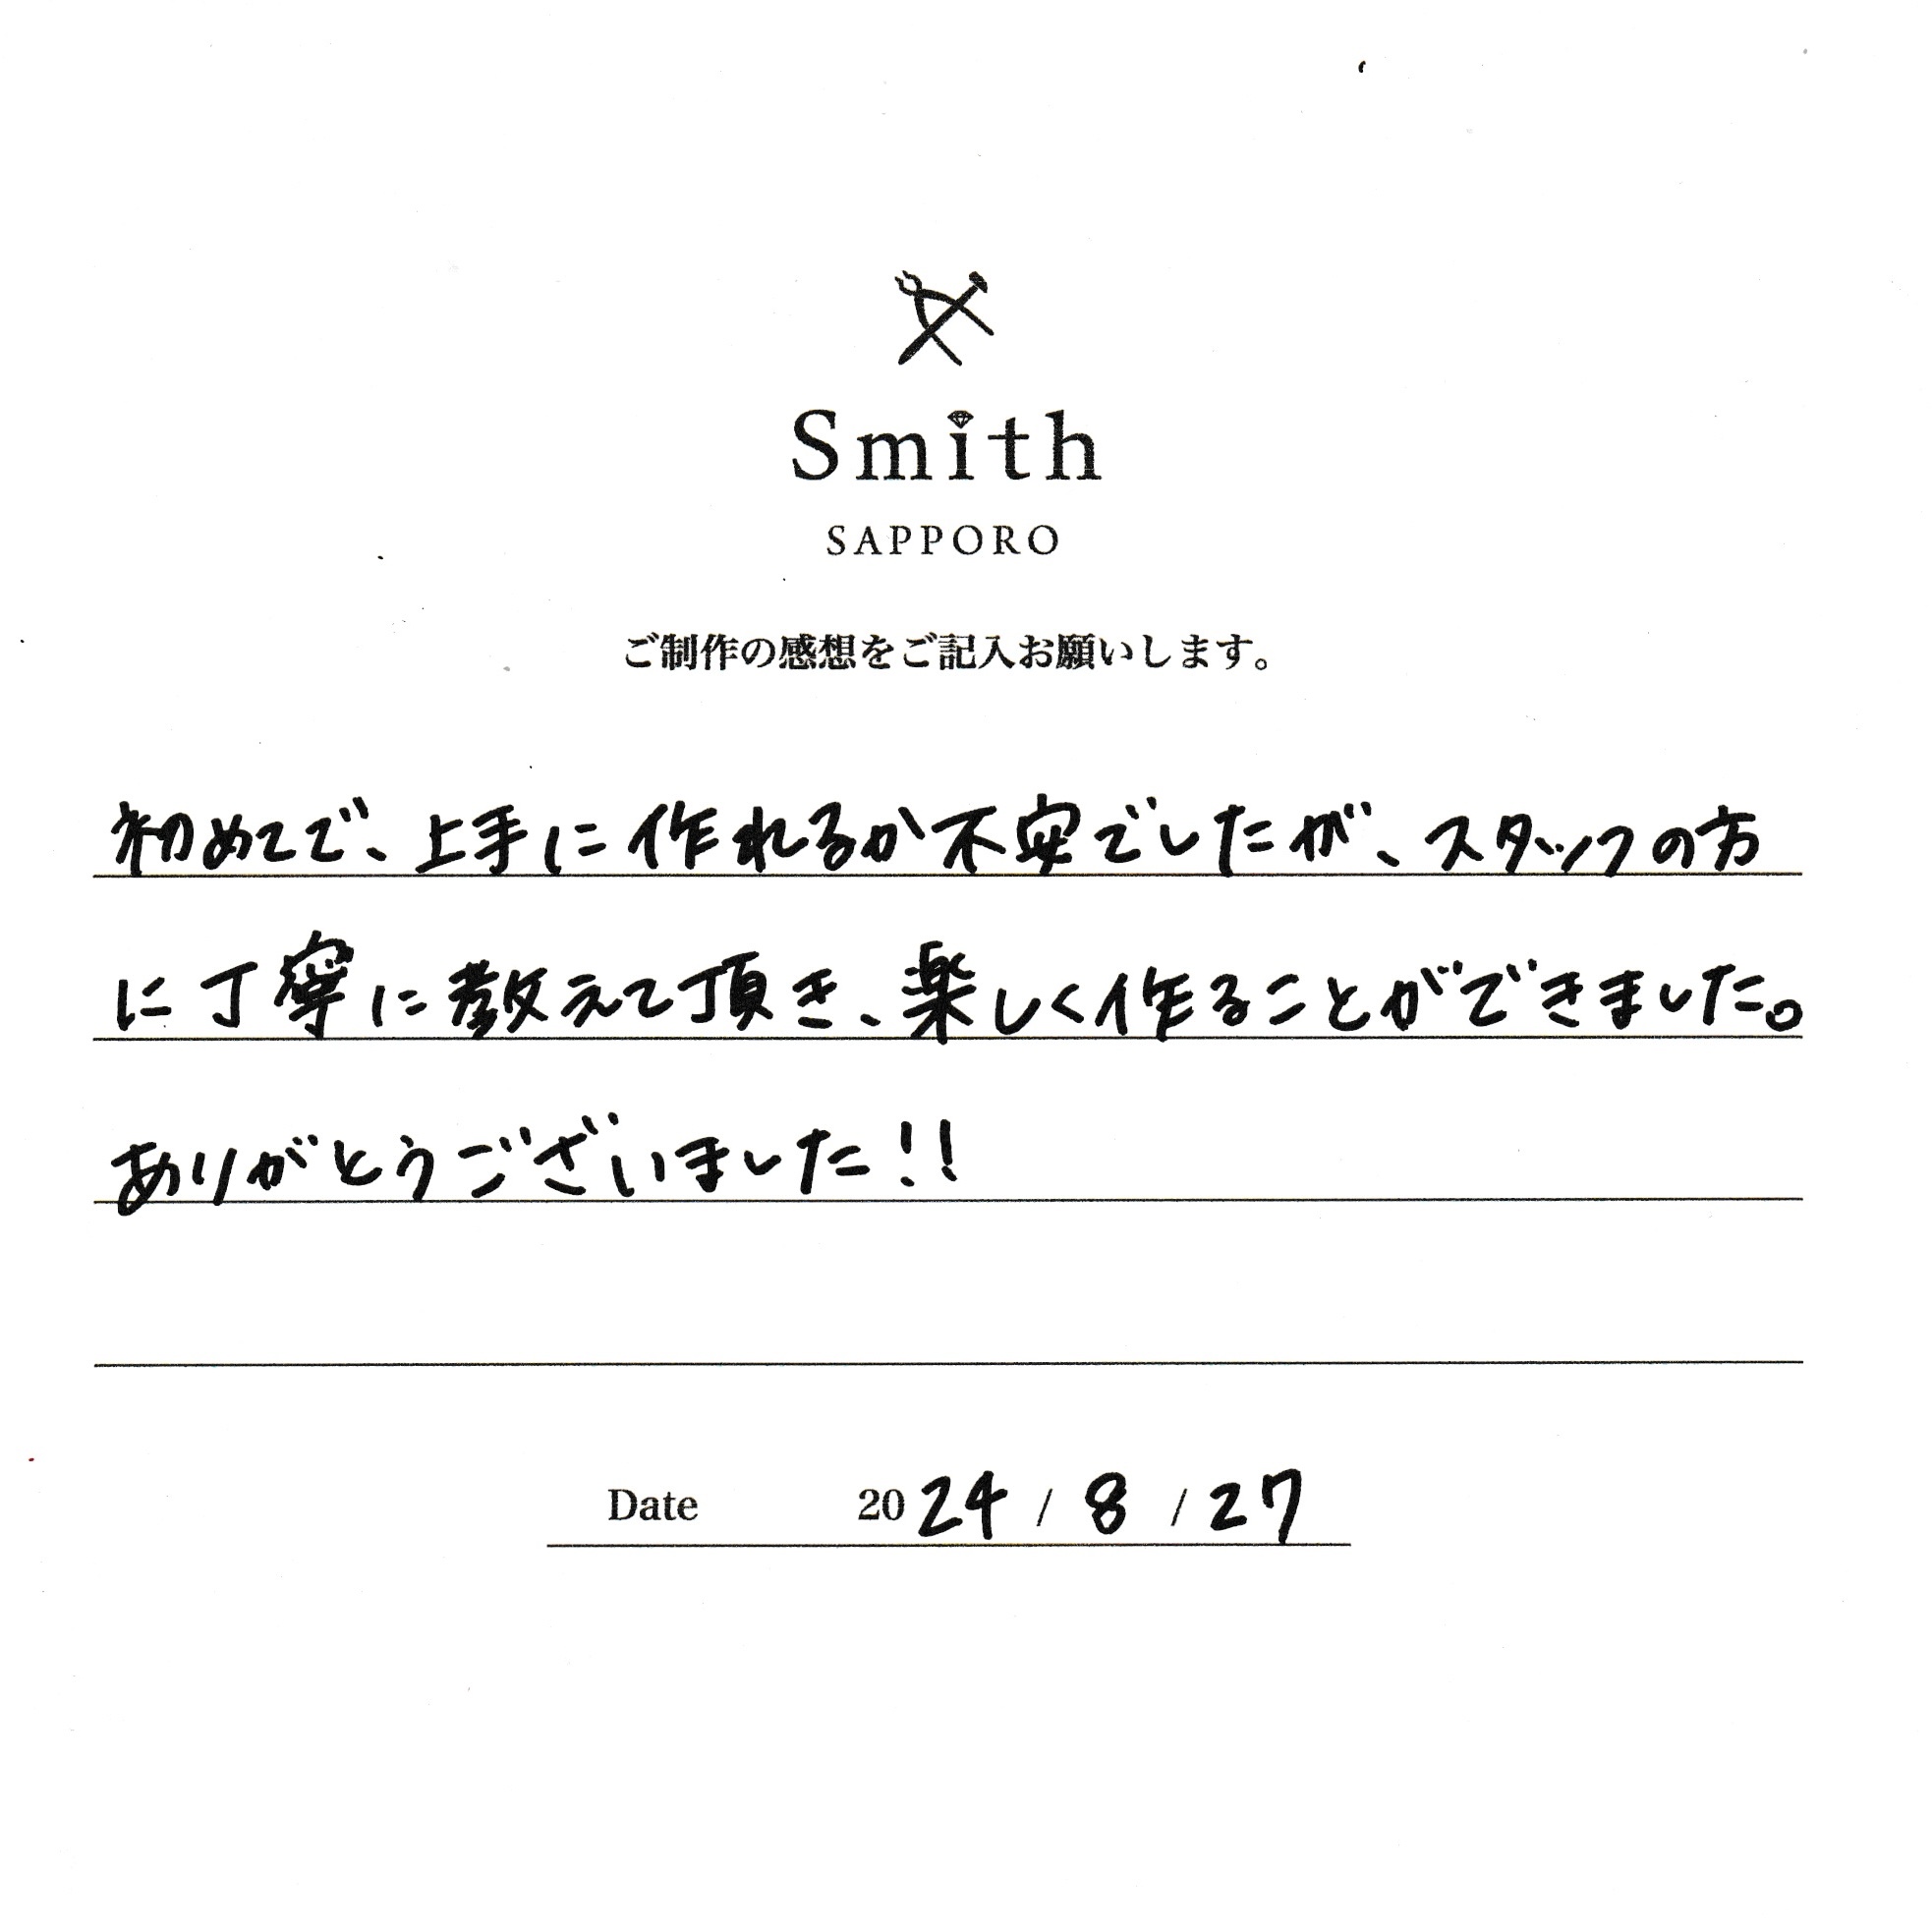 Smith
SAPPORO
ご制作の感想をご記入お願いします。
初めてで、上手に作れるか不安でしたが、スタッフの方
に丁寧に教えて頂き、楽しく作ることができました。
ありがとうございました!!
Date 2024 / 8 / 27